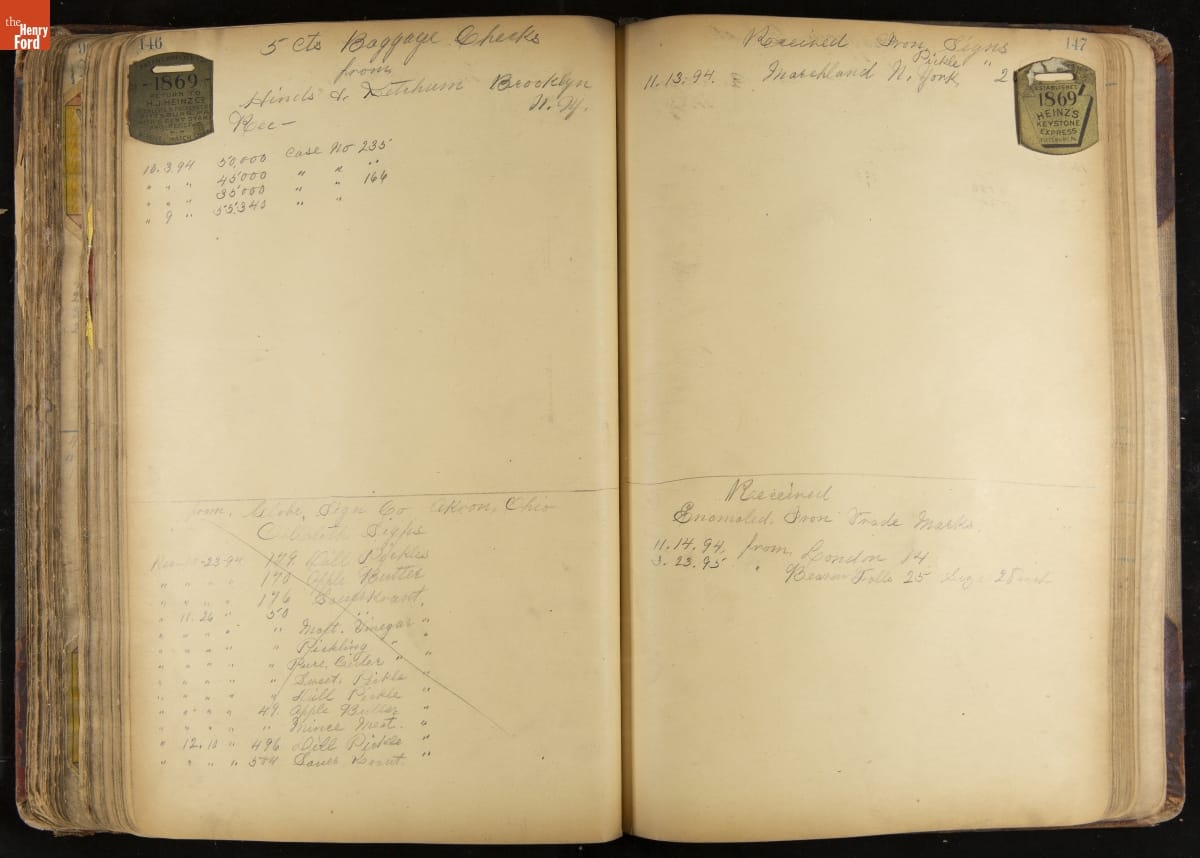 the
Henry
Ford
146
5 cts Baggage Checks
from
Hinds & Ketchum Brooklyn
N. Y.
Rec—
1869
RETURN TO
H.J. HEINZ CO.
10.3.94 50,000 Case No 235
" " " 45000 " " "
" " " 35000 " " 166
" 9 " 55340 " "
from, Globe Sign Co Akron, Ohio
Signs
23-94 179 Dill Pickles
" " " " 170 Apple Butter
" " " " 176 Sauer Kraut.
" 11.26 " 50 "
" " " " " Malt. Vinegar "
" " " " " Pickling " "
" " " " " Pure. Cider " "
" " " " " Sweet. Pickle "
" " " " " Dill Pickle "
" " " " 49. Apple Butter "
" " " " " Mince Meat. "
" 12.10 " 496 Dill Pickle "
" " " " 504 Sauer Kraut. "
147
Received Iron Signs
11.13.94. Marchland N. York Pickle " 2
ESTABLISHED
1869
HEINZ'S
KEYSTONE
EXPRESS
PITTSBURGH, PA.
Received
Enameled, Iron Trade Marks.
11.14.94. from, London 14
3.23.95 " Beaver Falls 25 Size 28 inch